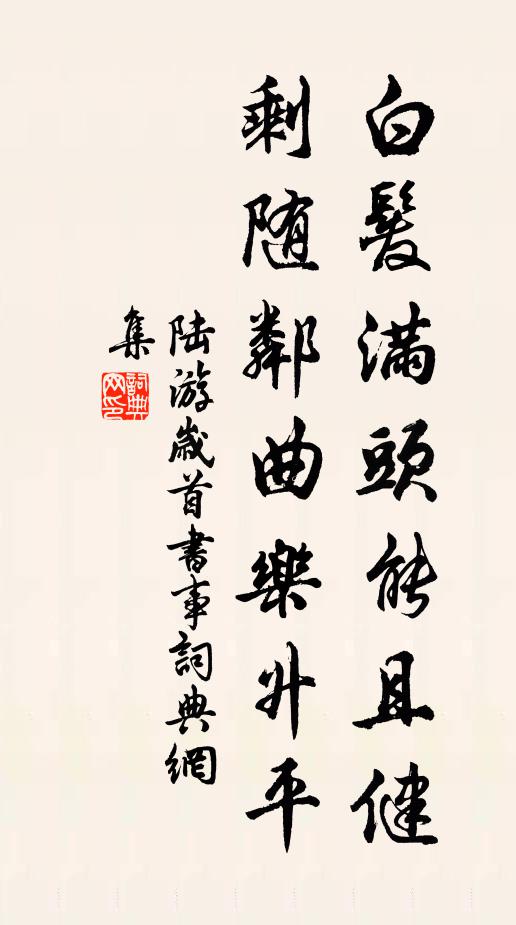 白髮满頭能且健
剩随鄰曲樂升平
陆游歲首書事詞典網
集
詞典
网印